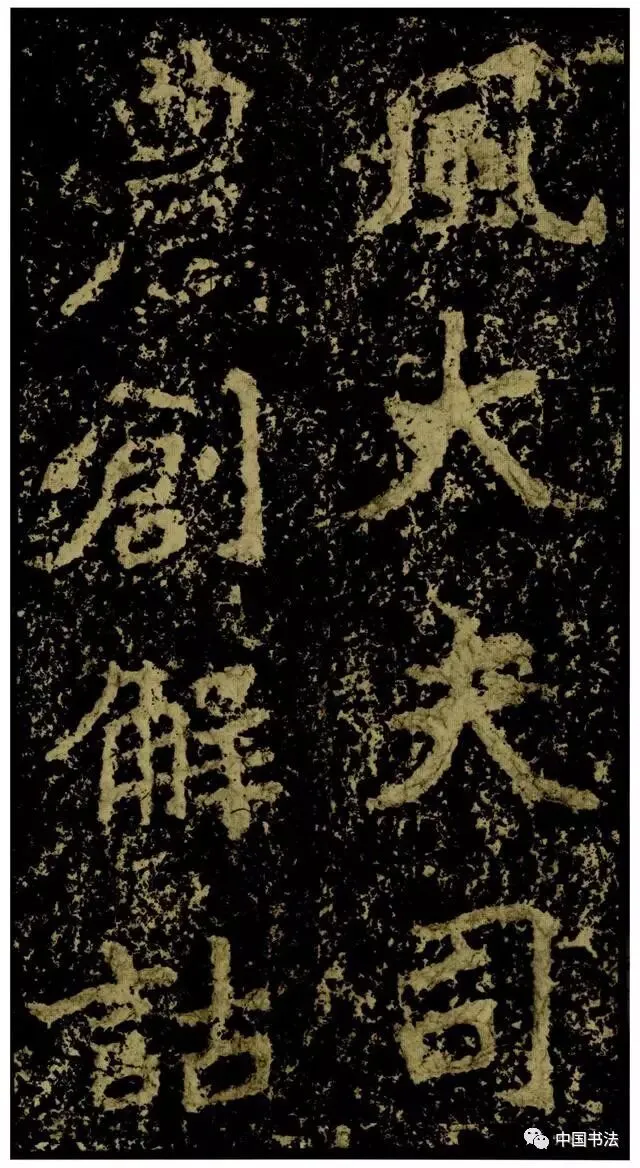 風大夫司
農創解詁
中国书法